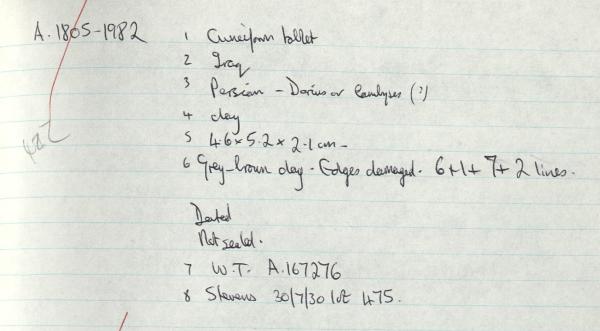 A.1805-1982
1 Cuneiform tablet
2 Iraq
3 Persian - Darius or Cambyses (?)
4 clay
5 4.6 x 5.2 x 2.1 cm -
6 Grey-brown clay. Edges damaged. 6+1+7+2 lines.
Dated
Not sealed.
7 W.T. A.167276
8 Stevens 30/7/30 lot 475.